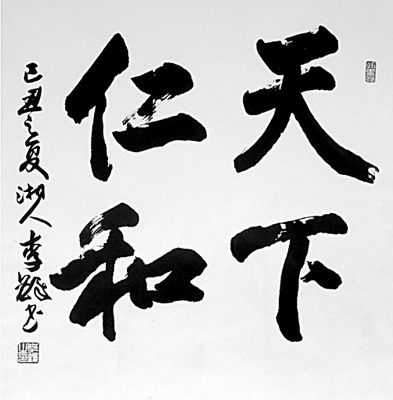 天下
仁和
己丑之夏湘人李书